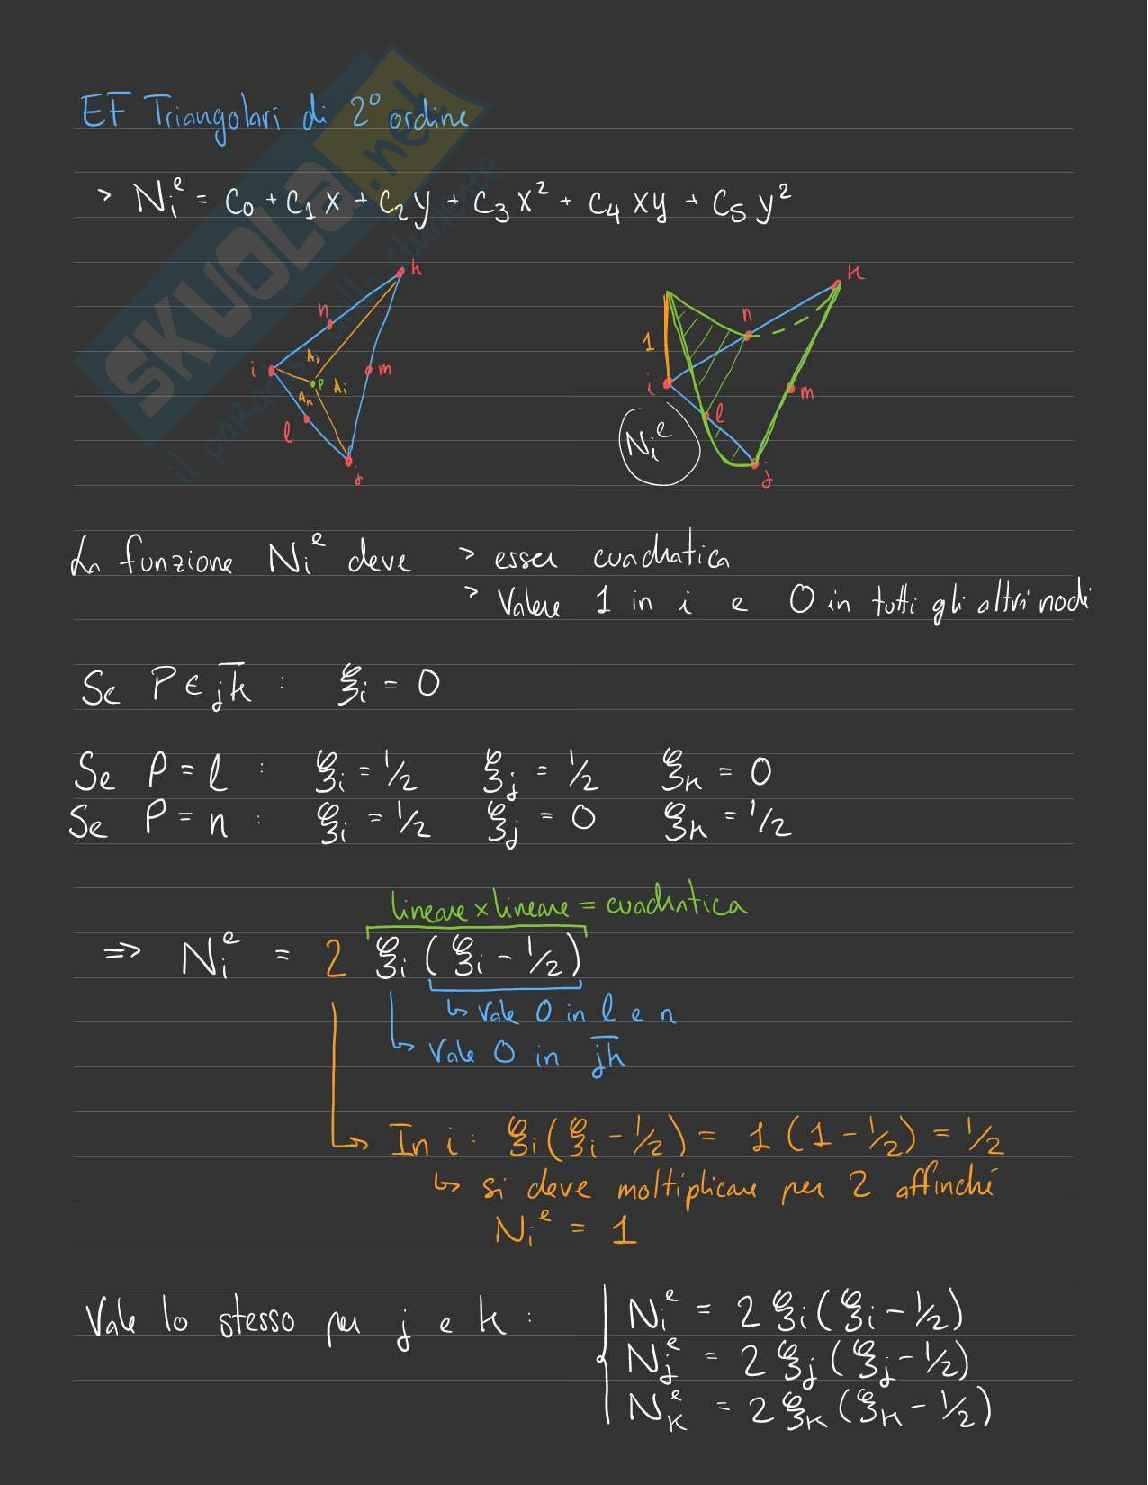 SKUOLA.net
EF Triangolari di 2° ordine
> Nᵢᵉ = C₀ + C₁ x + C₂ y + C₃ x² + C₄ xy + C₅ y²
k
n
i
Aⱼ
P
Aᵢ
Aₖ
m
l
j
k
n
1
i
m
l
Nᵢᵉ
j
La funzione Nᵢᵉ deve > esser cuadratica
> Valere 1 in i e 0 in tutti gli altri nodi
Se P ∈ j̅k̅ : ξᵢ = 0
Se P = l : ξᵢ = 1/2 ξⱼ = 1/2 ξₖ = 0
Se P = n : ξᵢ = 1/2 ξⱼ = 0 ξₖ = 1/2
lineare x lineare = cuadratica
=> Nᵢᵉ = 2 ξᵢ (ξᵢ - 1/2)
↳ Vale 0 in l e n
↳ Vale 0 in j̅k̅
↳ In i: ξᵢ(ξᵢ - 1/2) = 1 (1 - 1/2) = 1/2
↳ si deve moltiplicare per 2 affinché
Nᵢᵉ = 1
Vale lo stesso per j e k :
Nᵢᵉ = 2 ξᵢ (ξᵢ - 1/2)
Nⱼᵉ = 2 ξⱼ (ξⱼ - 1/2)
Nₖᵉ = 2 ξₖ (ξₖ - 1/2)